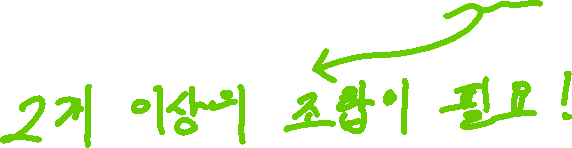 2개 이상의 조합이 필요!